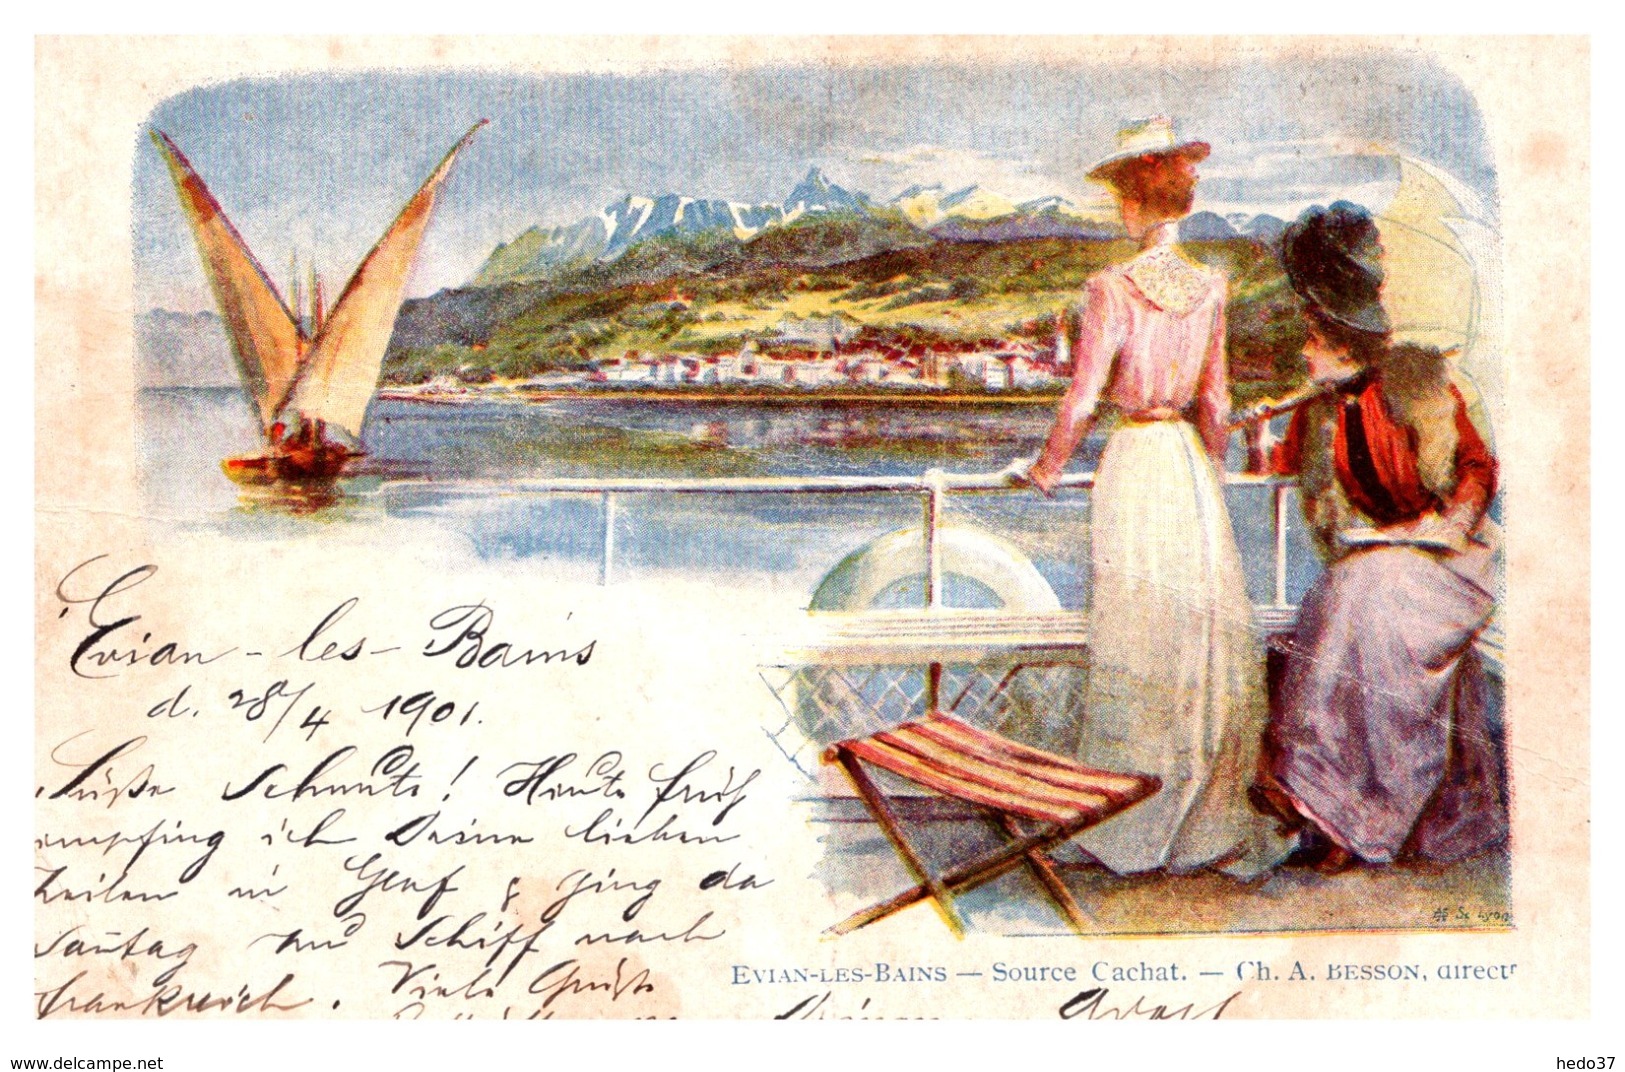 Evian-les-Bains
d. 28/4 1901.
Süße Schnute! Heute früh
empfing ich Deine lieben
Zeilen in Genf & ging da
Sonntag an Schiff nach
Frankreich. Viele Grüße
Adolf
Evian-les-Bains — Source Cachat. — Ch. A. Besson, directr
Sc Lyon
www.delcampe.net
hedo37